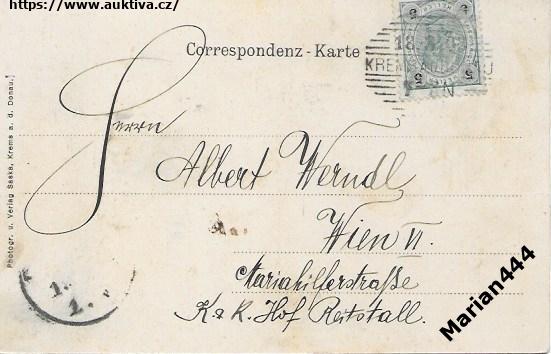 https://www.auktiva.cz/
Correspondenz-Karte
KREMS
Herrn
Albert Werndl
Wien VI.
Mariahilferstraße
K. & K. Hof Reitstall.
Photogr. u. Verlag Saska, Krems a. d. Donau.
Marian444